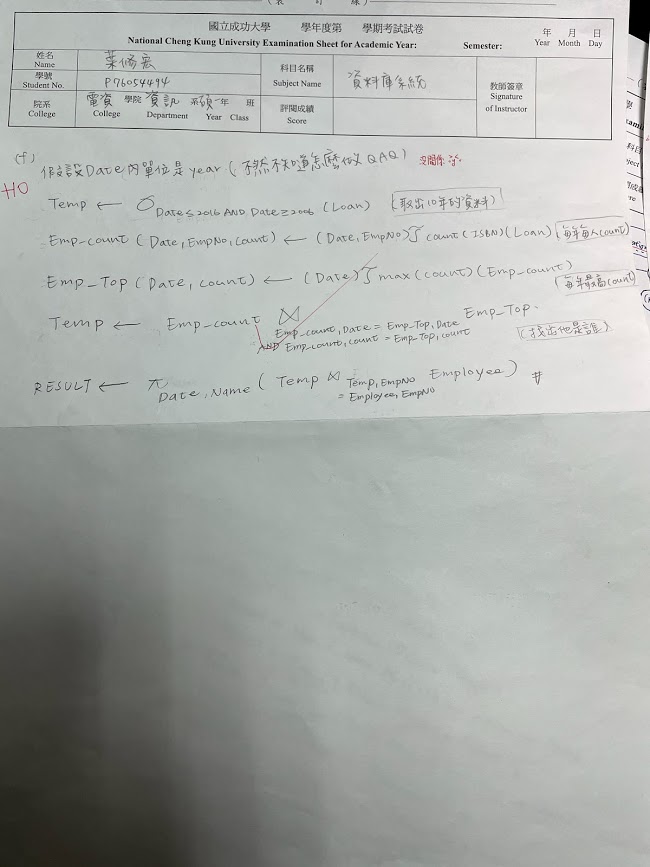 （裝 訂 線）
國立成功大學 學年度第 學期考試試卷
National Cheng Kung University Examination Sheet for Academic Year: Semester:
年 月 日
Year Month Day
姓名 Name 葉脩宏
學號 Student No. P76054494
科目名稱 Subject Name 資料庫系統
教師簽章 Signature of Instructor
院系 College 電資 學院 College 資訊 系 Department 碩一年 Year 班 Class
評閱成績 Score
(f)
假設Date內單位是year (不然不知道怎麼做QAQ) 沒關係
+10
Temp ← σ Date≤2016 AND Date≥2006 (Loan) (取出10年的資料)
Emp-count (Date, EmpNo, Count) ← (Date, EmpNo) ℱ count (ISBN) (Loan) (每年每人count)
Emp_Top (Date, count) ← (Date) ℱ max (count) (Emp-count)
(每年最高count)
Temp ← Emp-count ⋈ Emp_count, Date = Emp-Top, Date Emp_Top.
AND Emp_count, count = Emp-Top, count (找出他是誰)
RESULT ← π Date, Name ( Temp ⋈ Temp, EmpNo Employee ) #
= Employee, EmpNo